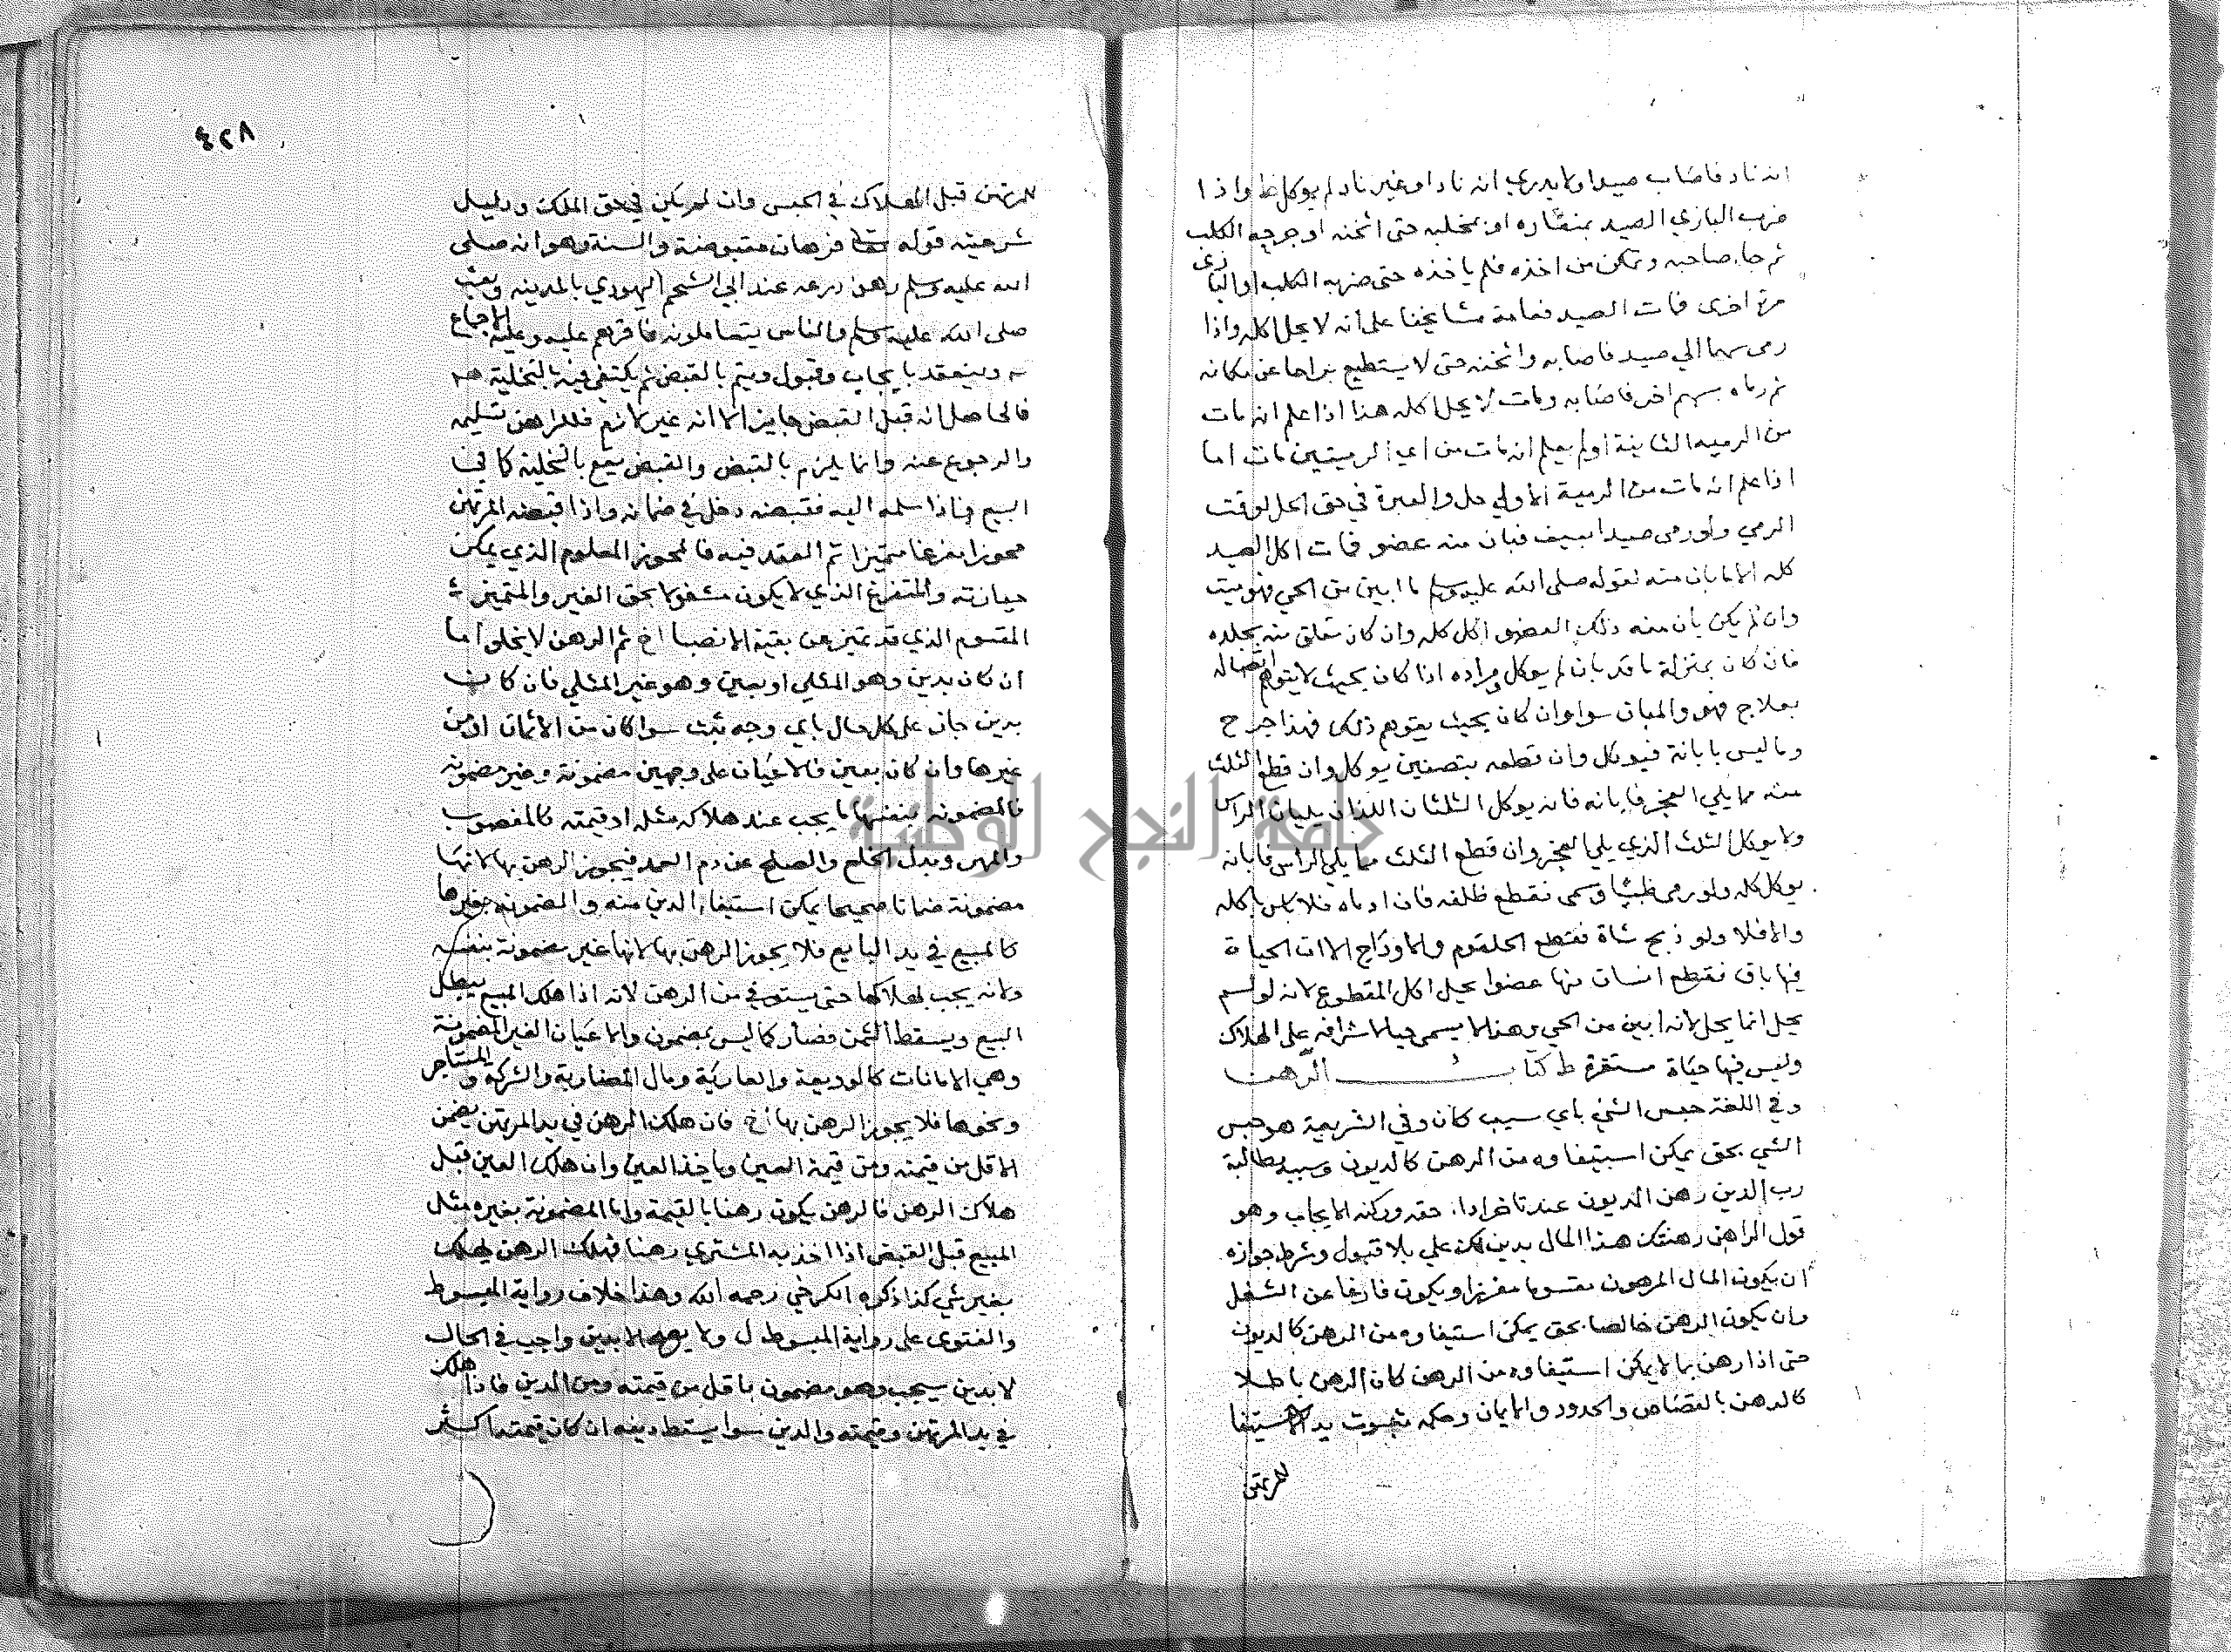 انه ناد فاصاب صيدا ولا يدري انه ناد او غير ناد لم يوكل ط واذا
ضرب البازي الصيد بمنقاره او بمخلبه حتى اثخنه او جرحه الكلب
ثم جاء صاحبه وتمكن من اخذه فلم ياخذه حتى ضربه الكلب او البازي
مرة اخرى فمات الصيد فعامة مشايخنا على انه لا يحل اكله واذا
رمى سهما الي صيد فاصابه واثخنه حتى لا يستطيع براحا عن مكانه
ثم رماه بسهم اخر فاصابه ومات لا يحل اكله هذا اذا علم انه مات
من الرميه الثانية او لم يعلم انه مات من اي الرميتين مات اما
اذا علم انه مات من الرمية الاولي حل والعبرة في حق الحل لوقت
الرمي ولو رمى صيدا بسيف فبان منه عضو فمات اكل الصيد
كله الا ما بان منه لقوله صلى الله عليه وسلم ما ابين من الحي فهو ميت
وان لم يكن بان منه ذلك العضو اكل كله وان كان تعلق منه بجلده
فان كان بمنزلة ما قد بان لم يوكل ومراده اذا كان بحيث لا يتوهم اتصاله
بعلاج فهو والمبان سوا وان كان بحيث يتوهم ذلك فهذا جرح
وما ليس بابانة فيوكل وان قطعه بنصفين يوكل وان قطع الثلث
منه مما يلي العجز فابانه فانه يوكل الثلثان اللذان يليان الراس
ولا يوكل الثلث الذي يلي العجز وان قطع الثلث مما يلي الراس فابانه
يوكل كله ولو رمى ظبيا وسمى فقطع ظلفه فان ادماه فلا باس باكله
والا فلا ولو ذبح شاة فقطع الحلقوم والاوداج الا ان الحياة
فيها باق فقطع انسان منها عضوا يحل اكل المقطوع لانه لو لم
يحل انما يحل لانه ابين من الحي وهذا لا يسمى حيا لاشرافه على الهلاك
وليس فيها حياة مستقرة ط كتاب الرهن
وفي اللغة حبس الشي باي سبب كان وفي الشريعة هو حبس
الشي بحق يمكن استيفاوه من الرهن كالديون وسببه مطالبة
رب الدين رهن المديون عند تاخر اداء حقه وركنه الايجاب وهو
قول الراهن رهنتك هذا المال بدين لك علي بلا قبول وشرط جوازه
ان يكون المال المرهون مقسوما مفرزا ويكون فارغا عن الشغل
وان يكون الرهن خالصا بحق يمكن استيفاوه من الرهن كالديون
حتى اذا رهن بما لا يمكن استيفاوه من الرهن كان الرهن باطلا
كالرهن بالقصاص والحدود والايمان وحكمه ثبوت يد الاستيفا
للمرتهن
٤٢٨
للمرتهن قبل الهلاك في الحبس وان لم يكن في حق الملك ودليل
شرعيته قوله فرهان مقبوضة والسنة وهو انه صلى
الله عليه وسلم رهن درعه عند ابي الشحم اليهودي بالمدينه وبعث
صلى الله عليه وسلم والناس يتعاملونه فاقرهم عليه وعليه الاجماع
وينعقد بايجاب وقبول ويتم بالقبض ثم يكتفي فيه بالتخلية
فالحاصل انه قبل القبض جايز الا انه غير لازم فللراهن تسليمه
والرجوع عنه وانما يلزم بالقبض والقبض يقع بالتخلية كما في
البيع فاذا سلمه اليه فقبضه دخل في ضمانه واذا قبضه المرتهن
محوزا مفرغا متميزا تم العقد فيه فالمحوز المعلوم الذي يمكن
حيازته والمتفرغ الذي لا يكون مشغولا بحق الغير والمتميز
المقسوم الذي قد تميز عن بقية الانصبا اخ ثم الرهن لا يخلو اما
ان كان بدين وهو المثلي او بعين وهو غير المثلي فان كان
بدين جاز على كل حال باي وجه ثبت سوا كان من الاثمان او من
غيرها وان كان بعين فالاعيان على وجهين مضمونة وغير مضمونه
فالمضمونه بنفسها ما يجب عند هلاكه مثله او قيمته كالمغصوب
والمهر وبدل الخلع والصلح عن دم العمد فيجوز الرهن بها لانها
مضمونة ضمانا صحيحا يمكن استيفاء الدين منه والمضمونه بغيرها
كالمبيع في يد البايع فلا يجوز الرهن بها لانها غير مضمونة بنفسه
ولانه يجب بهلاكها حتى يستوفي من الرهن لانه اذا هلك المبيع يبطل
البيع ويسقط الثمن فصار كما ليس بمضمون والاعيان الغير المضمونة
وهي الامانات كالوديعة والعارية ومال المضاربة والشركة والمستاجر
ونحوها فلا يجوز الرهن بها اخ فان هلك الرهن في يد المرتهن يضمن
الاقل من قيمته ومن قيمة العين وياخذ العين وان هلك العين قبل
هلاك الرهن فالرهن يكون رهنا بالقيمة واما المضمونة بغيره مثل
المبيع قبل القبض اذا اخذ به المشتري رهنا فهلك الرهن يهلك
بغير شي كذا ذكره الكرخي رحمه الله وهذا خلاف رواية المبسوط
والفتوى على رواية المبسوط ل ولا يصح الا بدين واجب في الحال
لا بدين سيجب وهو مضمون باقل من قيمته ومن الدين فاذا هلك
في يد المرتهن وقيمته والدين سوا يسقط دينه ان كان قيمته اكثر
جامعة النجاح الوطنية